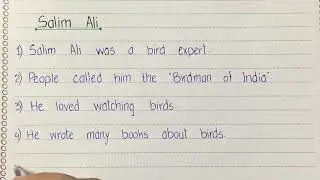 Salim Ali.
1) Salim Ali was a bird expert.
2) People called him the "Birdman of India".
3) He loved watching birds.
4) He wrote many books about birds.